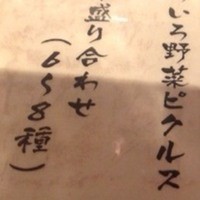 いろ野菜ピクルス
盛り合わせ
(6~8種)